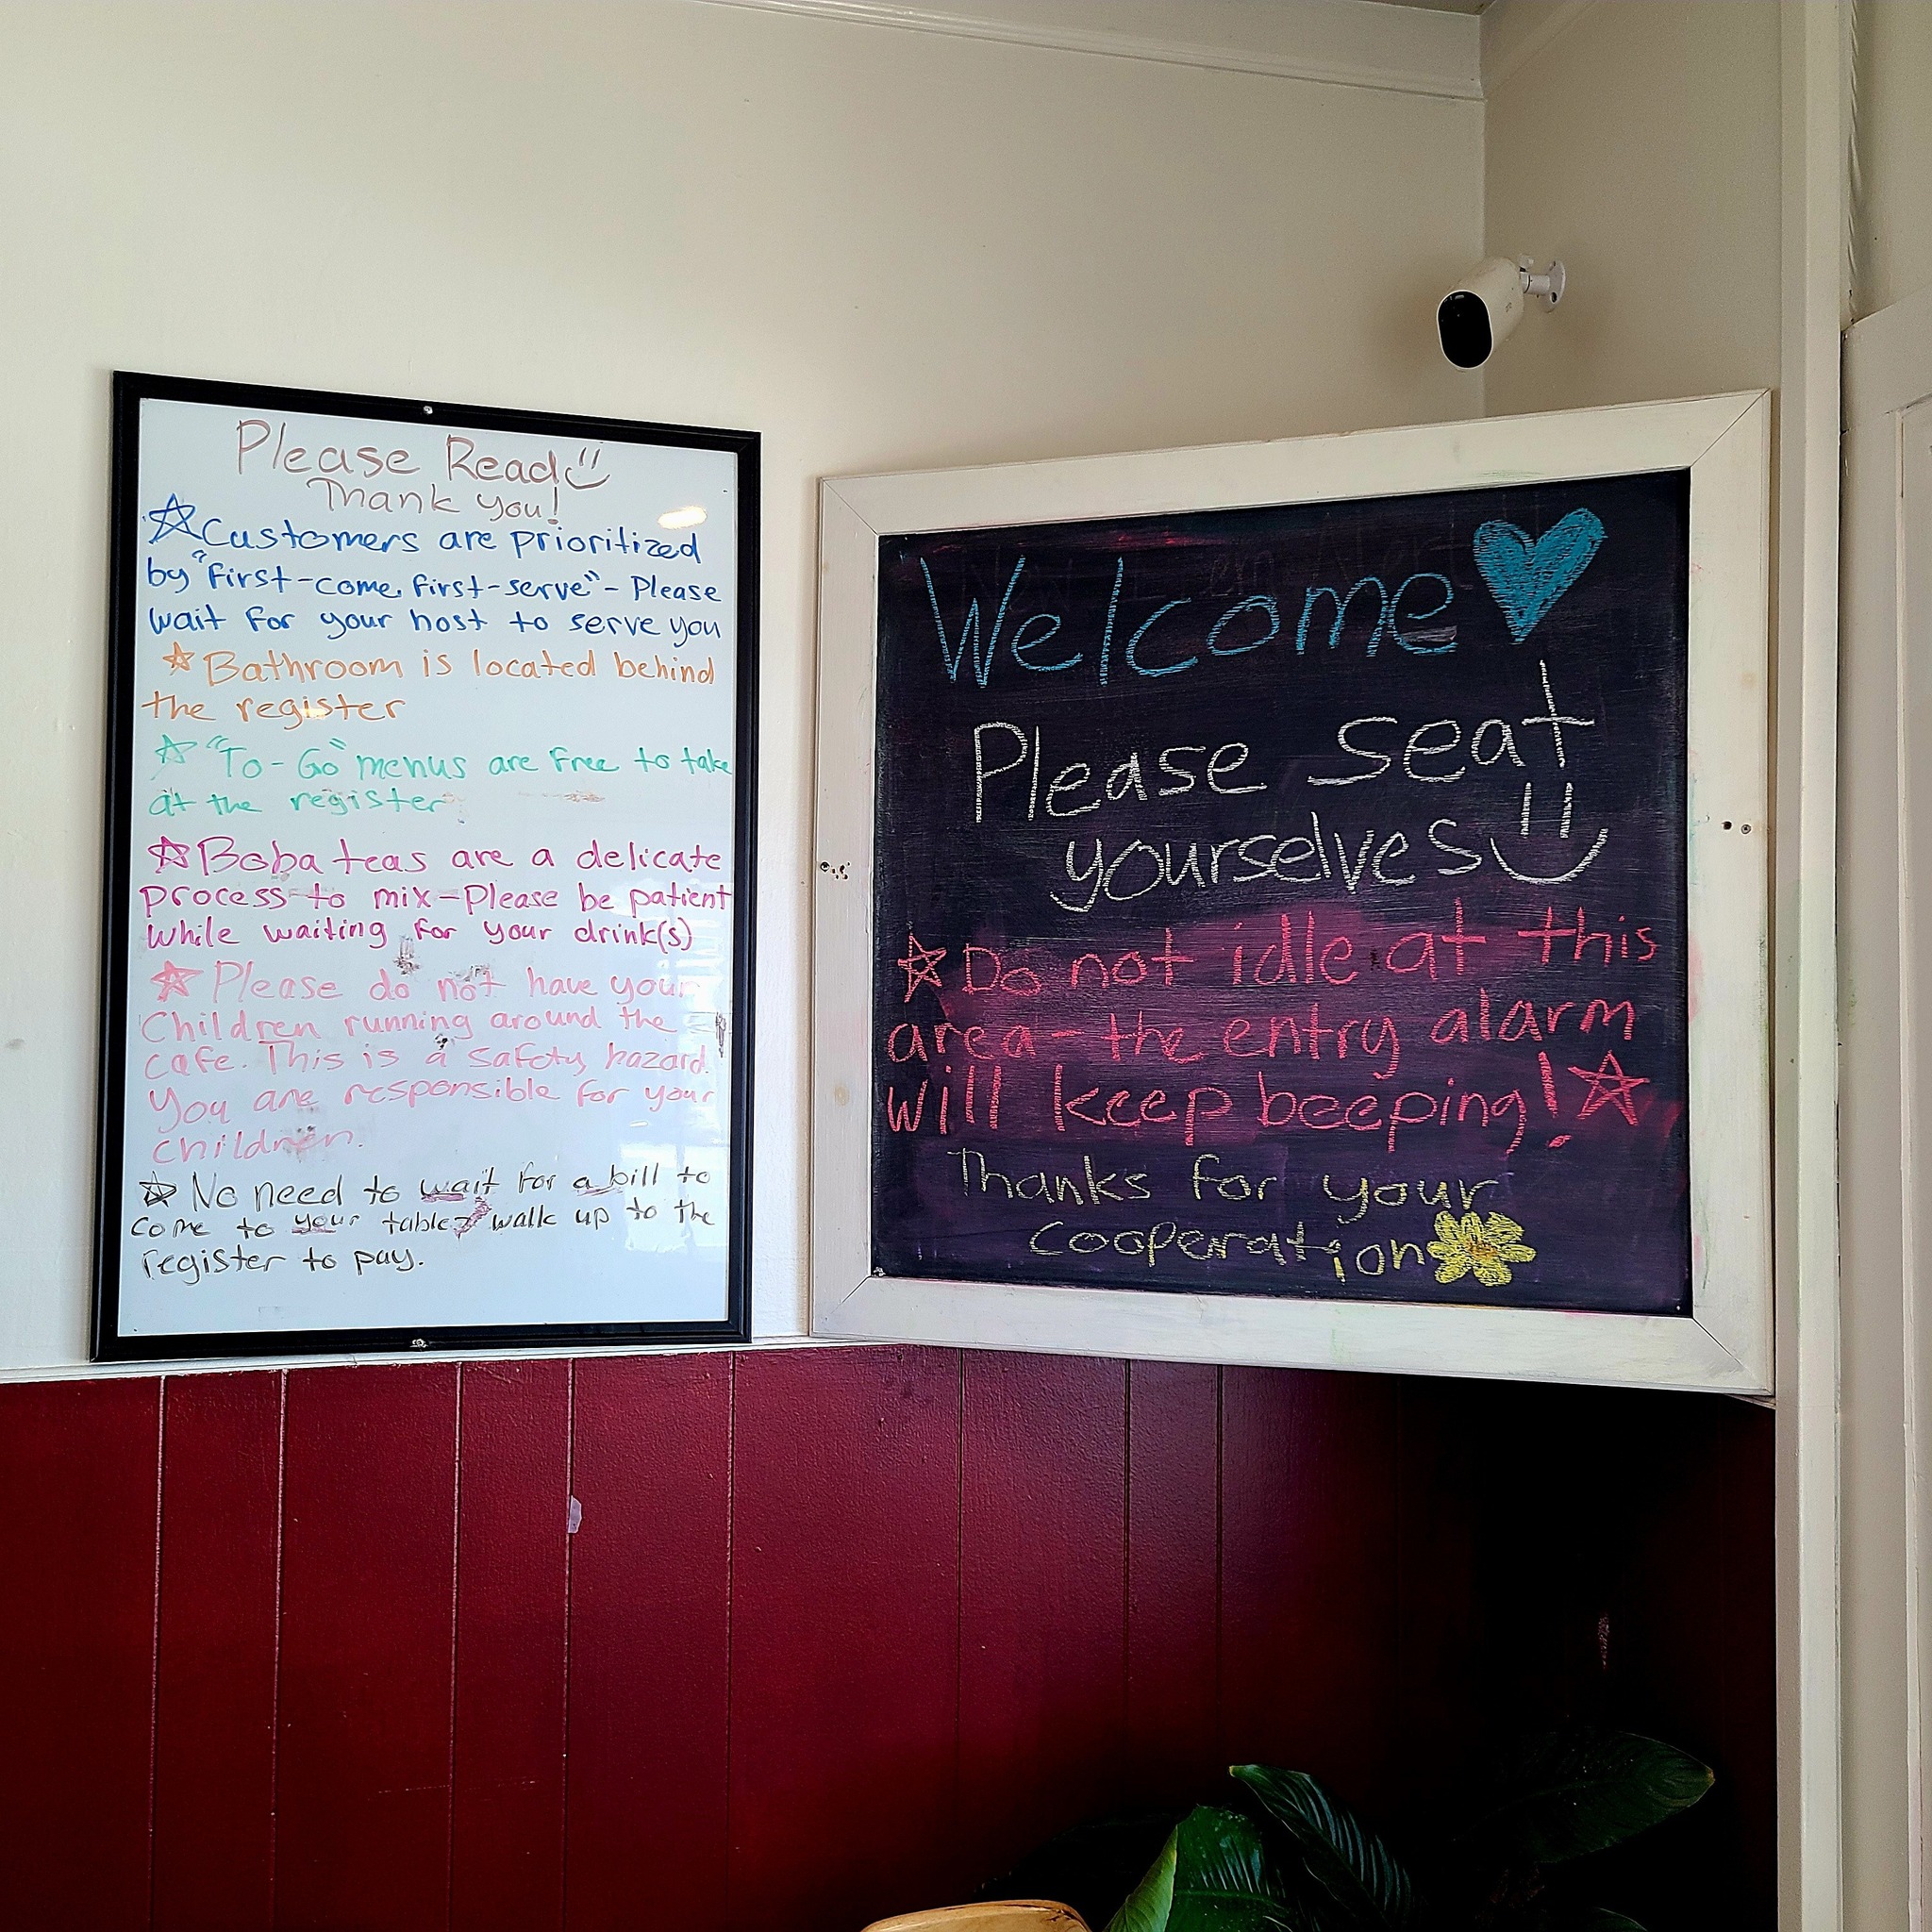 Please Read
Thank you!
Customers are prioritized
by "first-come, first-serve" - Please
wait for your host to serve you
Bathroom is located behind
the register
"To-Go" menus are free to take
at the register
Boba teas are a delicate
process to mix - Please be patient
while waiting for your drink(s)
Please do not have your
Children running around the
cafe. This is a safety hazard.
You are responsible for your
children.
No need to wait for a bill to
come to your table, walk up to the
register to pay.
Welcome
Please seat
yourselves
Do not idle at this
area - the entry alarm
will keep beeping!
Thanks for your
cooperation